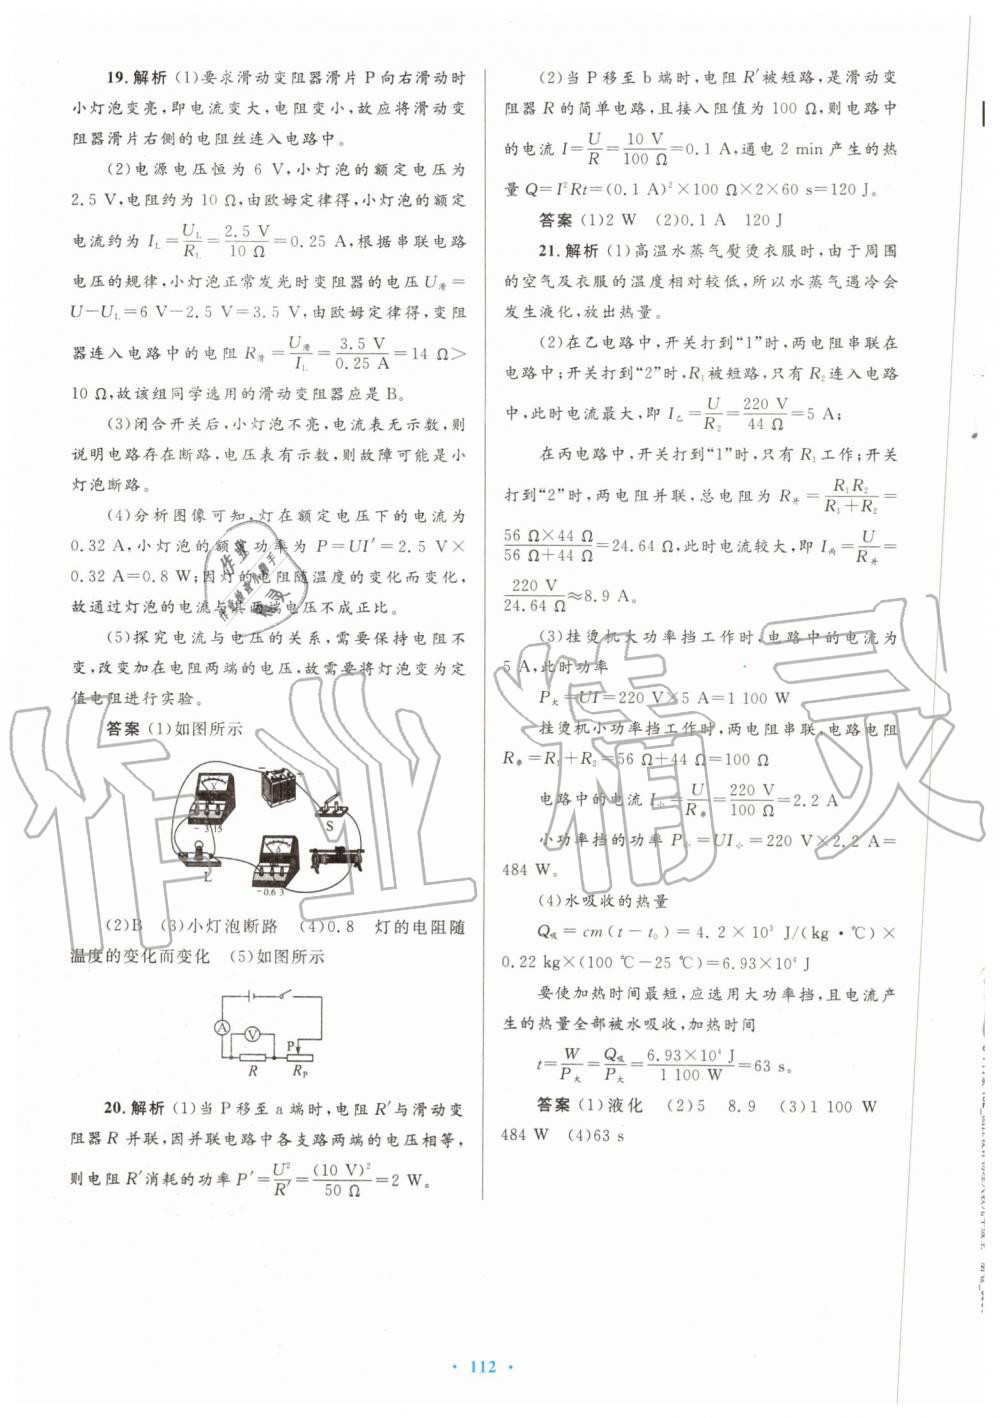 19.解析 (1)要求滑动变阻器滑片 P 向右滑动时
小灯泡变亮,即电流变大,电阻变小,故应将滑动变
阻器滑片右侧的电阻丝连入电路中。
(2)电源电压恒为 6 V,小灯泡的额定电压为
2.5 V,电阻约为 10 Ω,由欧姆定律得,小灯泡的额定
电流约为 I_L=U_L/R_L=2.5 V/10 Ω=0.25 A,根据串联电路
电压的规律,小灯泡正常发光时变阻器的电压 U_滑=
U-U_L=6 V-2.5 V=3.5 V,由欧姆定律得,变阻
器连入电路中的电阻 R_滑=U_滑/I_L=3.5 V/0.25 A=14 Ω>
10 Ω,故该组同学选用的滑动变阻器应是 B。
(3)闭合开关后,小灯泡不亮,电流表无示数,则
说明电路存在断路,电压表有示数,则故障可能是小
灯泡断路。
(4)分析图像可知,灯在额定电压下的电流为
0.32 A,小灯泡的额定功率为 P=UI′=2.5 V×
0.32 A=0.8 W;因灯的电阻随温度的变化而变化,
故通过灯泡的电流与其两端电压不成正比。
(5)探究电流与电压的关系,需要保持电阻不
变,改变加在电阻两端的电压,故需要将灯泡变为定
值电阻进行实验。
答案 (1)如图所示
V
-3 15
S
L
A
-0.6 3
(2)B (3)小灯泡断路 (4)0.8 灯的电阻随
温度的变化而变化 (5)如图所示
A
V
P
R
R_P
20.解析 (1)当 P 移至 a 端时,电阻 R′与滑动变
阻器 R 并联,因并联电路中各支路两端的电压相等,
则电阻 R′消耗的功率 P′=U²/R′=(10 V)²/50 Ω=2 W。
(2)当 P 移至 b 端时,电阻 R′被短路,是滑动变
阻器 R 的简单电路,且接入阻值为 100 Ω,则电路中
的电流 I=U/R=10 V/100 Ω=0.1 A,通电 2 min 产生的热
量 Q=I²Rt=(0.1 A)²×100 Ω×2×60 s=120 J。
答案 (1)2 W (2)0.1 A 120 J
21.解析 (1)高温水蒸气熨烫衣服时,由于周围
的空气及衣服的温度相对较低,所以水蒸气遇冷会
发生液化,放出热量。
(2)在乙电路中,开关打到“1”时,两电阻串联在
电路中;开关打到“2”时,R₁被短路,只有 R₂连入电路
中,此时电流最大,即 I_乙=U/R₂=220 V/44 Ω=5 A;
在丙电路中,开关打到“1”时,只有 R₁工作;开关
打到“2”时,两电阻并联,总电阻为 R_并=R₁R₂/(R₁+R₂)=
56 Ω×44 Ω/(56 Ω+44 Ω)=24.64 Ω,此时电流较大,即 I_丙=U/R_并
=220 V/24.64 Ω≈8.9 A。
(3)挂烫机大功率挡工作时,电路中的电流为
5 A,此时功率
P_大=UI=220 V×5 A=1 100 W
挂烫机小功率挡工作时,两电阻串联,电路电阻
R_串=R₁+R₂=56 Ω+44 Ω=100 Ω
电路中的电流 I_小=U/R_串=220 V/100 Ω=2.2 A
小功率挡的功率 P_小=UI_小=220 V×2.2 A=
484 W。
(4)水吸收的热量
Q_吸=cm(t-t₀)=4.2×10³ J/(kg·℃)×
0.22 kg×(100 ℃-25 ℃)=6.93×10⁴ J
要使加热时间最短,应选用大功率挡,且电流产
生的热量全部被水吸收,加热时间
t=W/P_大=Q_吸/P_大=6.93×10⁴ J/1 100 W=63 s。
答案 (1)液化 (2)5 8.9 (3)1 100 W
484 W (4)63 s
· 112 ·
作业精灵